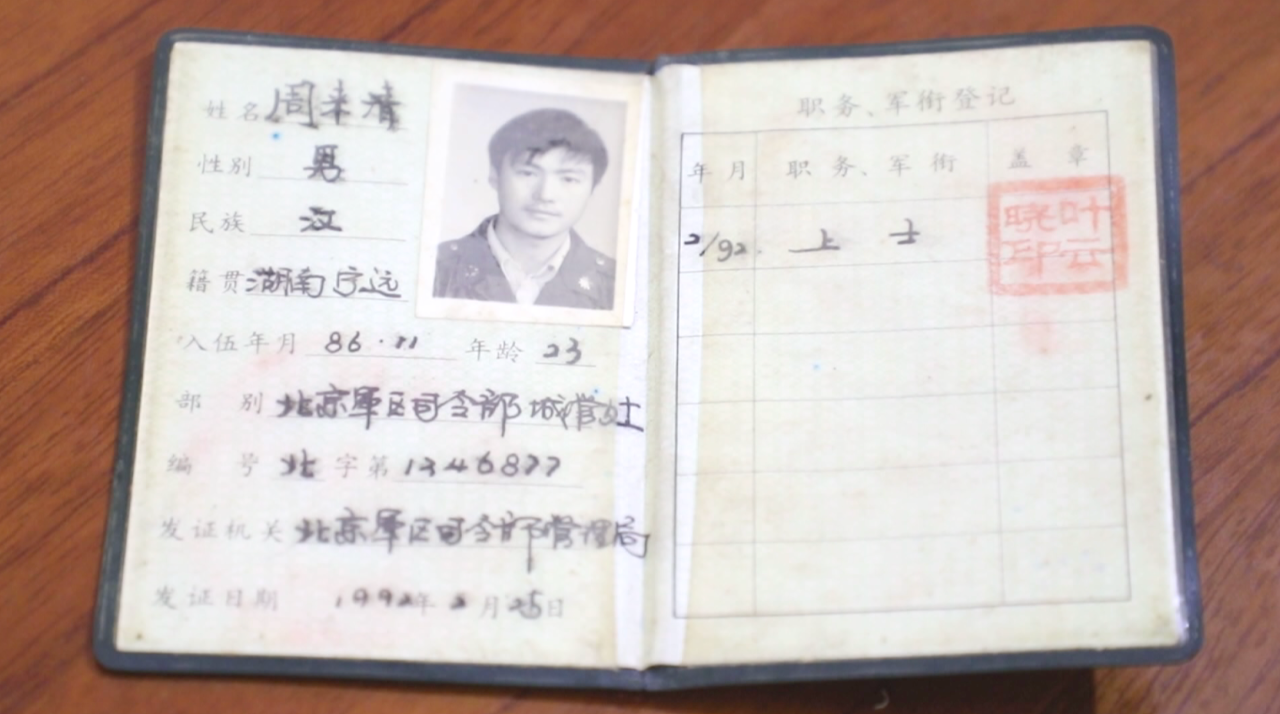 姓名 周来清
性别 男
民族 汉
籍贯 湖南宁远
入伍年月 86.11 年龄 23
部别 北京军区司令部
编号 北字第1346877
发证机关 北京军区司令部管理局
发证日期 1992年2月25日
职务、军衔登记
年月 职务、军衔 盖章
2/92. 上士
叶云晓印